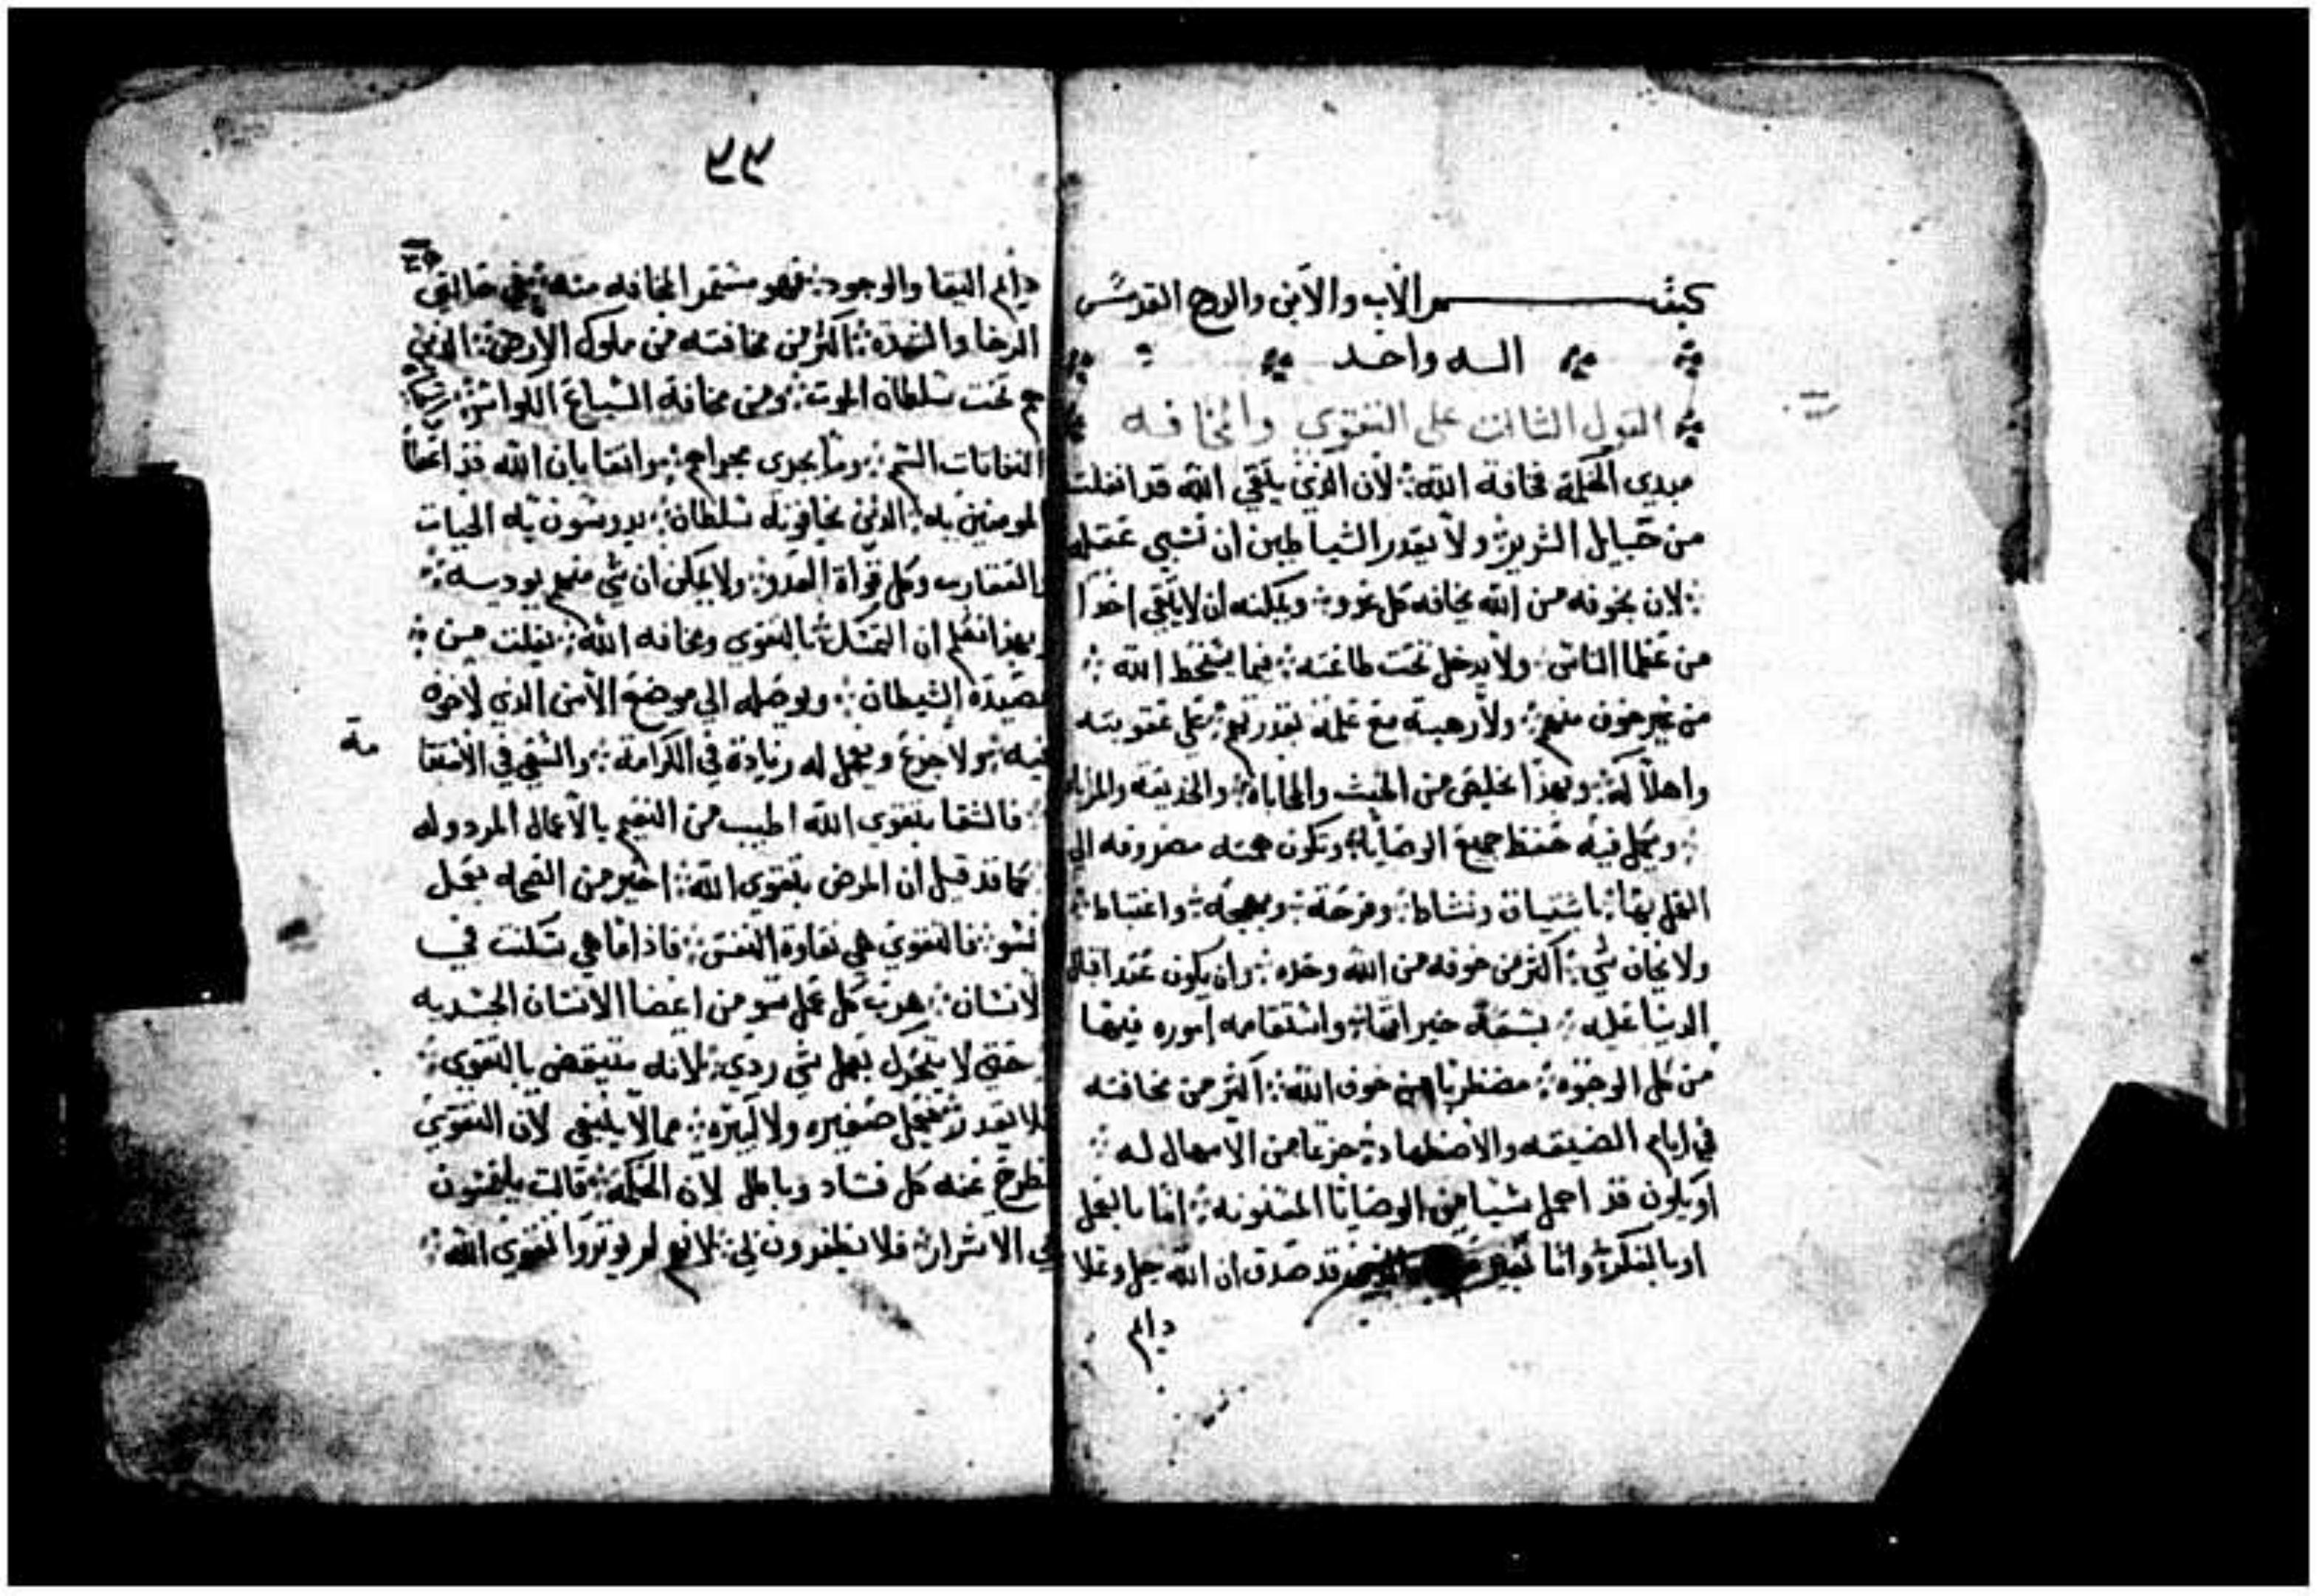 بسم الاب والابن والروح القدس
اله واحد
القول الثالث على التقوي والمخافه
مبدي الحكمة مخافة الله لان الذي يتقي الله قد افلت
من حبايل الشرير ولا يقدر الشياطين ان تسبي عقله
لان بخوفه من الله يخافه كل عدو ويمكنه ان لا يتقي احدا
من عظما الناس ولا يدخل تحت طاعته فيما يسخط الله
من غير خوف منهم ولا رهبة مع علمه بقدرتهم على عقوبته
واهلاكه وبهذا يخلص من الخبث والمحاباة والخديعه والمرياه
ويكمل فيه حفظ جميع الوصايا وتكون همته مصروفه الي
العمل بها باشتياق ونشاط وفرحة وبهجه واغتباط
ولا يخاف شي اكثر من خوفه من الله وحده وان يكون عند اقبال
الدنيا عليه بسعة خيراتها واستقامه اموره فيها
من كل الوجوه مضطربا من خوف الله اكثر من مخافته
في ايام الضيقه والاضطهاد جزعا من الامهال له
او يكون قد اهمل شيا من الوصايا المسنونه اما بالفعل
او بالفكر واما قد صدق ان الله جل وعلا
دايم
٩٩
دايم البقا والوجود فهو مستمر المخافه منه في حالتي
الرخا والشدة اكثر من مخافته من ملوك الارض الذين
هم تحت سلطان الموت ومن مخافة السباع الكواسر
النفاثات السم وما يجري مجراهم واثقا بان الله قد اعطا
المومنين به الذين يخافونه سلطان يدوسون به الحيات
والعقارب وكل قوات العدو ولا يمكن ان شي منهم يوديه
وبهذا نعلم ان التمسك بالتقوي ومخافه الله يفلت من
مصيدة الشيطان ويوصله الي موضع الامن الذي لا خوف
فيه ولا جزع ويجعل له زيادة في الكرامة والسعي في الاتقا
مة
فالشقا بتقوي الله اطيب من النعيم بالاعمال المردوله
كما قد قيل ان المرض بتقوي الله اخير من الصحه بعمل
السو فالتقوي هي نقاوة النفس فاذا ما هي سكنت في
الانسان هرب كل عمل سو من اعضا الانسان الجسديه
حتي لا يتحرك بعمل شي ردي لانه متيقض بالتقوي
فلا يقدر يفعل صغيره ولا كبيره مما لا ينبغي لان التقوي
تطرح عنه كل فساد وباطل لان الحكمة قالت يلتمسون
ني الاشرار فلا يظفرون لي لانهم لم يوثروا تقوي الله